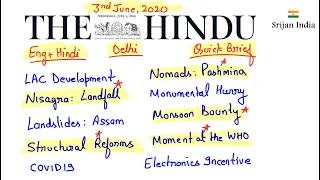 3nd June, 2020
Srijan India
THE HINDU
WEDNESDAY, JUNE 3, 2020
Eng + Hindi
Delhi
Quick Brief
LAC Development
Nisagra: Landfall
Landslides: Assam
Structural Reforms
COVID19
Nomads: Pashmina
Monumental Hurry
Monsoon Bounty
Moment at the WHO
Electronics Incentive